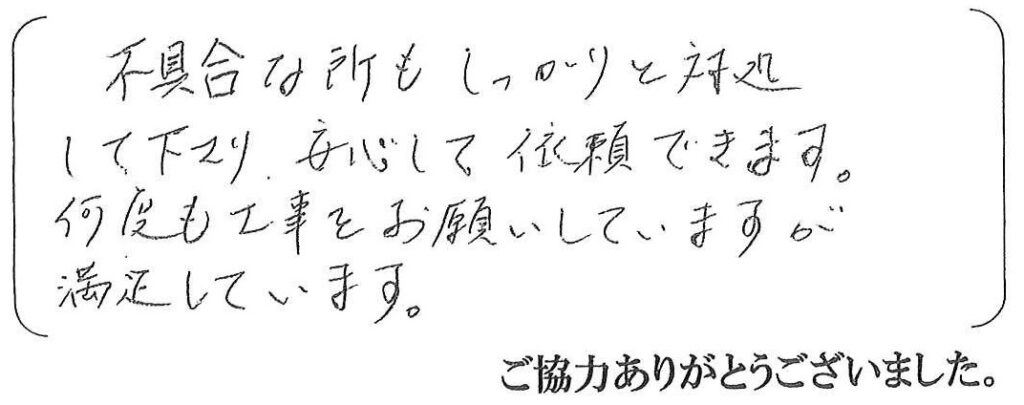 不具合な所もしっかりと対処
して下さり、安心して依頼できます。
何度も工事をお願いしていますが
満足しています。
ご協力ありがとうございました。